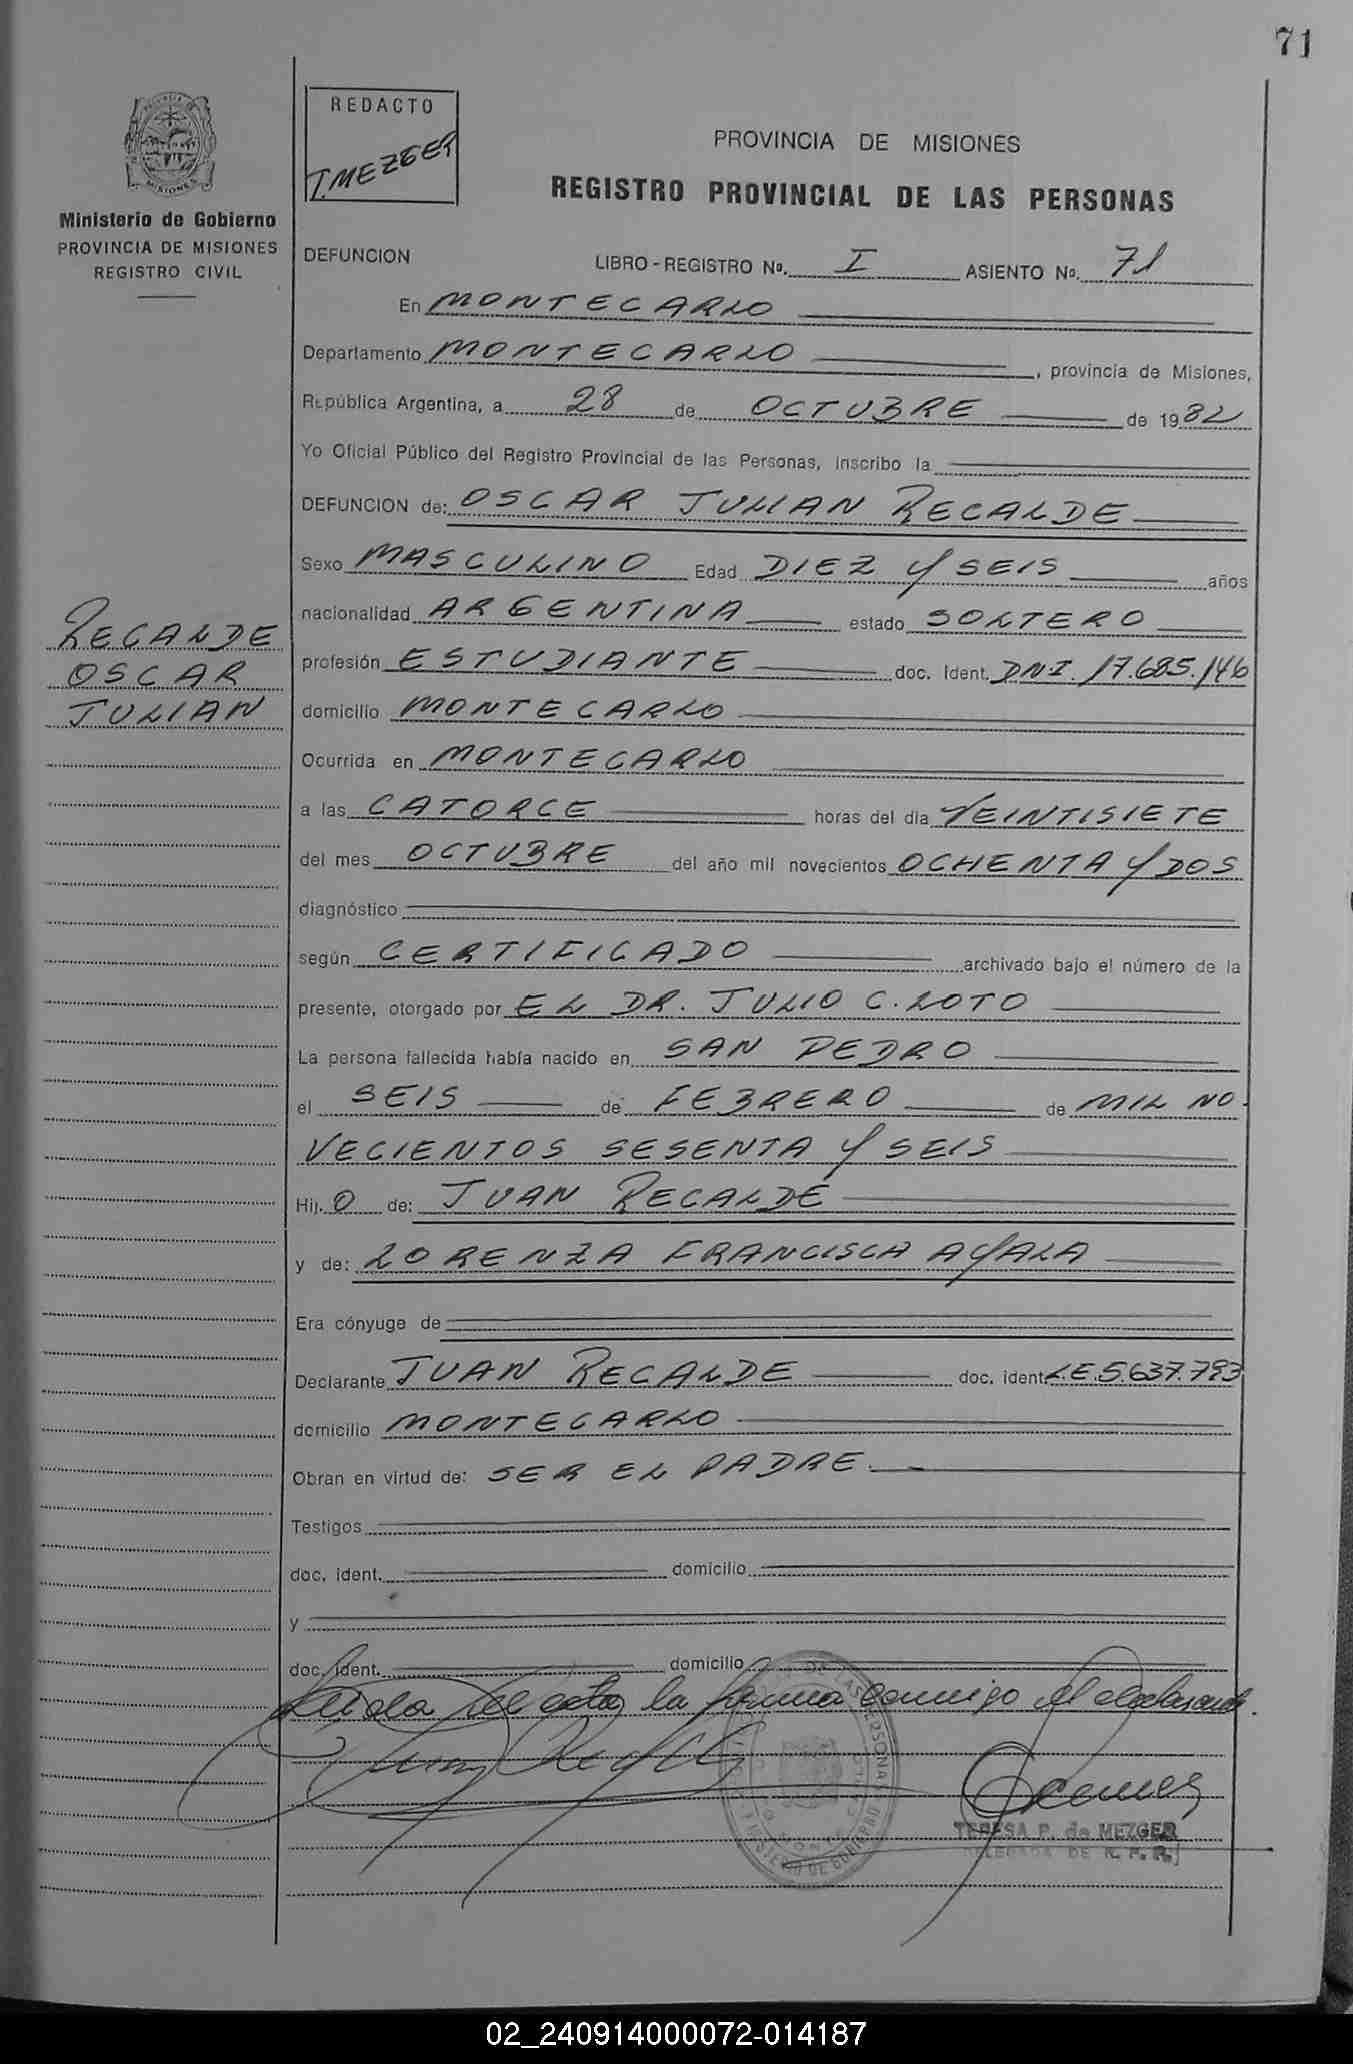 71
REDACTO
T. MEZGER
Ministerio de Gobierno
PROVINCIA DE MISIONES
REGISTRO CIVIL
PROVINCIA DE MISIONES
REGISTRO PROVINCIAL DE LAS PERSONAS
DEFUNCION LIBRO - REGISTRO Nº. I ASIENTO Nº. 71
En MONTECARLO
Departamento MONTECARLO, provincia de Misiones,
República Argentina, a 28 de OCTUBRE de 1982
Yo Oficial Público del Registro Provincial de las Personas, inscribo la
DEFUNCION de: OSCAR JULIAN RECALDE
Sexo MASCULINO Edad DIEZ Y SEIS años
RECALDE
OSCAR
JULIAN
nacionalidad ARGENTINA estado SOLTERO
profesión ESTUDIANTE doc. ident. DNI. 17.685.146
domicilio MONTECARLO
Ocurrida en MONTECARLO
a las CATORCE horas del día VEINTISIETE
del mes OCTUBRE del año mil novecientos OCHENTA Y DOS
diagnóstico
según CERTIFICADO archivado bajo el número de la
presente, otorgado por EL DR. JULIO C. LOTO
La persona fallecida había nacido en SAN PEDRO
el SEIS de FEBRERO de MIL NO-
VECIENTOS SESENTA Y SEIS
Hij. O de: JUAN RECALDE
y de: LORENZA FRANCISCA AYALA
Era cónyuge de
Declarante JUAN RECALDE doc. ident. L.E.5.637.793
domicilio MONTECARLO
Obran en virtud de: SER EL PADRE.
Testigos
doc. ident. domicilio
y
doc. ident. domicilio
Leida el acta la firma conmigo el declarante.
TERESA P. de MEZGER
DELEGADA DE R. P. P.
02_240914000072-014187